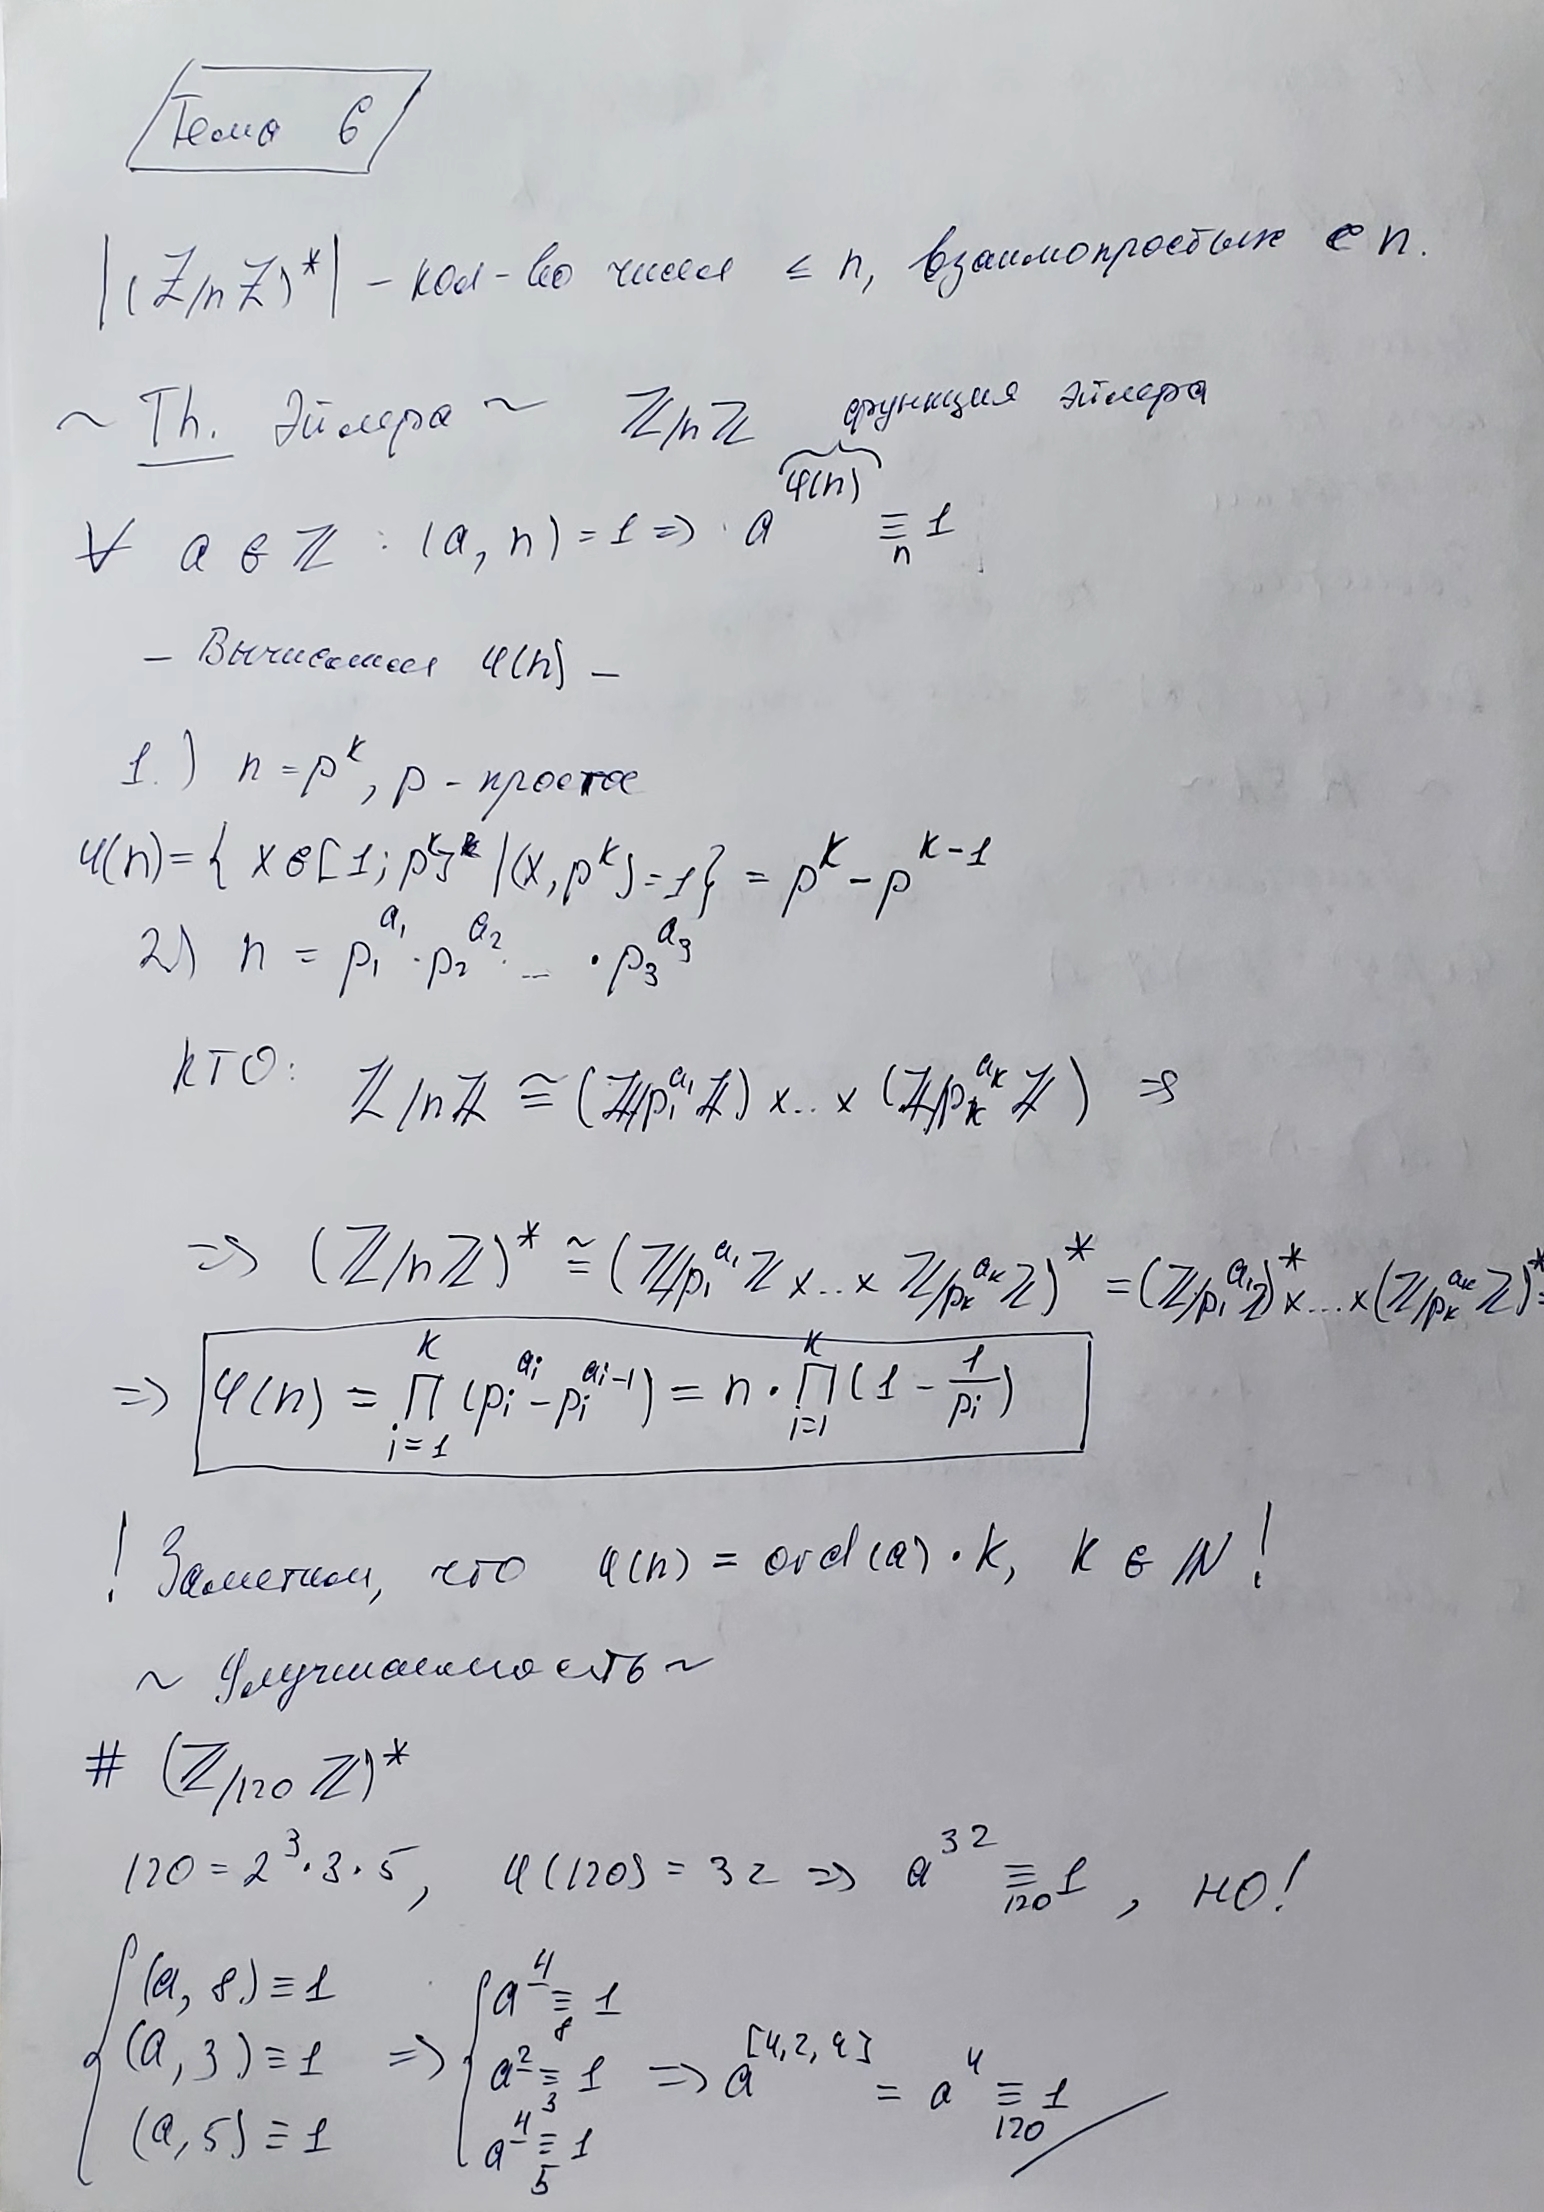 Тема 6
|(ℤ/nℤ)*| – кол-во чисел ≤ n, взаимопростых с n.
~ Th. Эйлера ~ ℤ/nℤ функция Эйлера
∀ a ∈ ℤ : (a, n) = 1 => a^φ(n) ≡_n 1
– Вычислим φ(n) –
1.) n = p^k, p – простое
φ(n) = { x ∈ [1; p^k] | (x, p^k) = 1 } = p^k – p^(k-1)
2) n = p_1^a_1 · p_2^a_2 · ... · p_3^a_3
КТО: ℤ/nℤ ≅ (ℤ/p_1^a_1 ℤ) × .. × (ℤ/p_k^a_k ℤ) =>
=> (ℤ/nℤ)* ≅ (ℤ/p_1^a_1 ℤ × ... × ℤ/p_k^a_k ℤ)* = (ℤ/p_1^a_1 ℤ)* × ... × (ℤ/p_k^a_k ℤ)* =
=> φ(n) = ∏_{i=1}^{k} (p_i^a_i – p_i^(a_i-1)) = n · ∏_{i=1}^{k} (1 – 1/p_i)
! Заметим, что φ(n) = ord(a) · k, k ∈ ℕ !
~ Улучшаемость ~
# (ℤ/120ℤ)*
120 = 2^3 · 3 · 5, φ(120) = 32 => a^32 ≡_120 1, НО!
(a, 8) ≡ 1 a^4 ≡_8 1
(a, 3) ≡ 1 => a^2 ≡_3 1 => a^[4,2,4] = a^4 ≡_120 1
(a, 5) ≡ 1 a^4 ≡_5 1